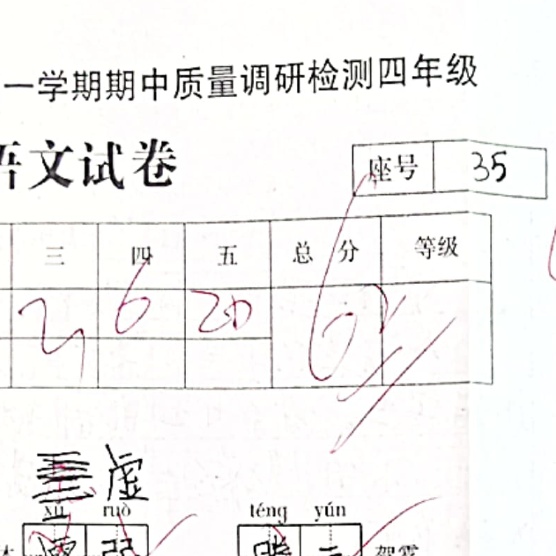 一学期期中质量调研检测四年级
语文试卷
座号 35
三 四 五 总 分 等级
21 6 20
虚
xū ruò téng yún